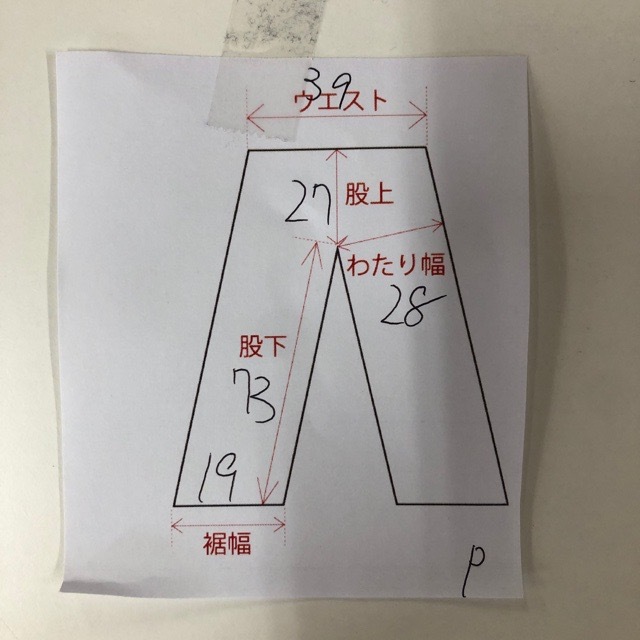 39
ウエスト
27
股上
わたり幅
28
股下
73
19
裾幅
p